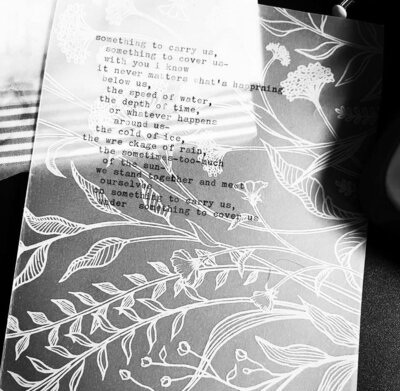 something to carry us,
something to cover us-
with you i know
it never matters what's happening
below us,
the speed of water,
the depth of time,
or whatever happens
around us-
the cold of ice,
the wre ckage of rain,
the sometimes-too-much
of the sun-
we stand together and meet
ourselves
on something to carry us,
under something to cover us